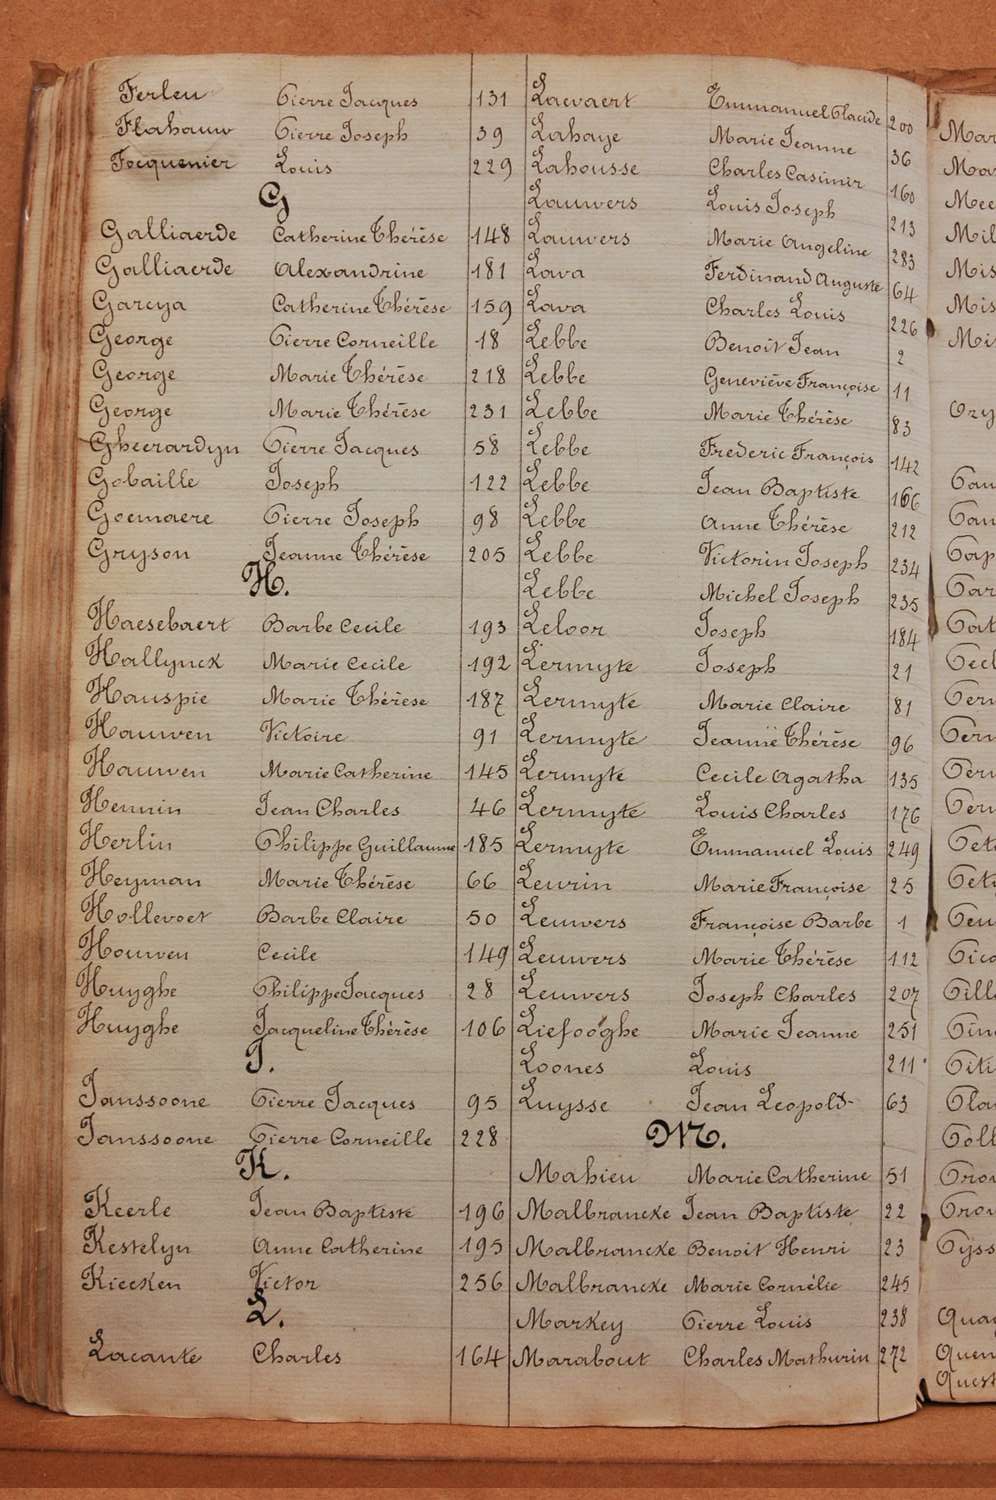 Ferleu Pierre Jacques 131
Flahauw Pierre Joseph 39
Focquenier Louis 229
G
Galliaerde Catherine Thérèse 148
Galliaerde Alexandrine 181
Garcya Catherine Thérèse 159
George Pierre Corneille 18
George Marie Thérèse 218
George Marie Thérèse 231
Gheerardyn Pierre Jacques 58
Gobaille Joseph 122
Goemaere Pierre Joseph 98
Gryson Jeanne Thérèse 205
H.
Haesebaert Barbe Cecile 193
Hallynck Marie Cecile 192
Hauspie Marie Thérèse 187
Hauwen Victoire 91
Hauwen Marie Catherine 145
Hennin Jean Charles 46
Herlin Philippe Guillaume 185
Heyman Marie Thérèse 66
Hollevoet Barbe Claire 50
Houwen Cecile 149
Huyghe Philippe Jacques 28
Huyghe Jacqueline Thérèse 106
J.
Janssoone Pierre Jacques 95
Janssoone Pierre Corneille 228
K.
Keerle Jean Baptiste 196
Kestelyn Anne Catherine 195
Kiecken Victor 256
L.
Lacante Charles 164
Laevaert Emmanuel Placide 200
Lahaye Marie Jeanne 36
Lahousse Charles Casimir 160
Lauwers Louis Joseph 213
Lauwers Marie Angeline 283
Lava Ferdinand Auguste 64
Lava Charles Louis 226
Lebbe Benoît Jean 2
Lebbe Geneviève Françoise 11
Lebbe Marie Thérèse 83
Lebbe Frederic François 142
Lebbe Jean Baptiste 166
Lebbe Anne Thérèse 212
Lebbe Victorin Joseph 234
Lebbe Michel Joseph 235
Leloor Joseph 184
Lermyte Joseph 21
Lermyte Marie Claire 81
Lermyte Jeanne Thérèse 96
Lermyte Cecile Agatha 135
Lermyte Louis Charles 176
Lermyte Emmanuel Louis 249
Leurin Marie Françoise 25
Leuwers Françoise Barbe 1
Leuwers Marie Thérèse 112
Leuwers Joseph Charles 207
Liefooghe Marie Jeanne 251
Loones Louis 211
Luysse Jean Leopold 63
M.
Mahieu Marie Catherine 51
Malbrancke Jean Baptiste 22
Malbrancke Benoit Henri 23
Malbrancke Marie Cornélie 245
Markey Pierre Louis 238
Marabout Charles Mathurin 272